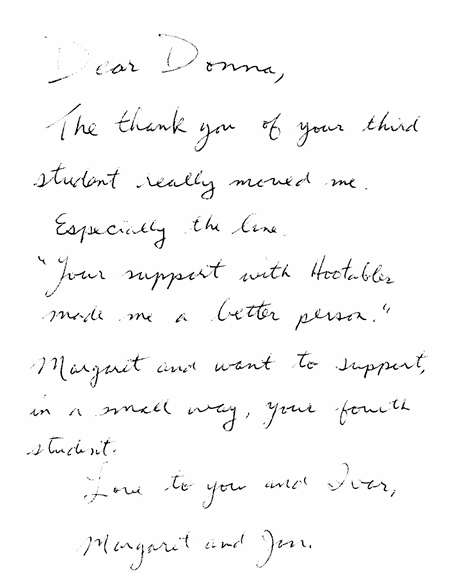 Dear Donna,
The thank you of your third
student really moved me.
Especially the line.
"Your support with Hootables
made me a better person."
Margaret and want to support,
in a small way, your fourth
student.
Love to you and Ivar,
Margaret and Jon.